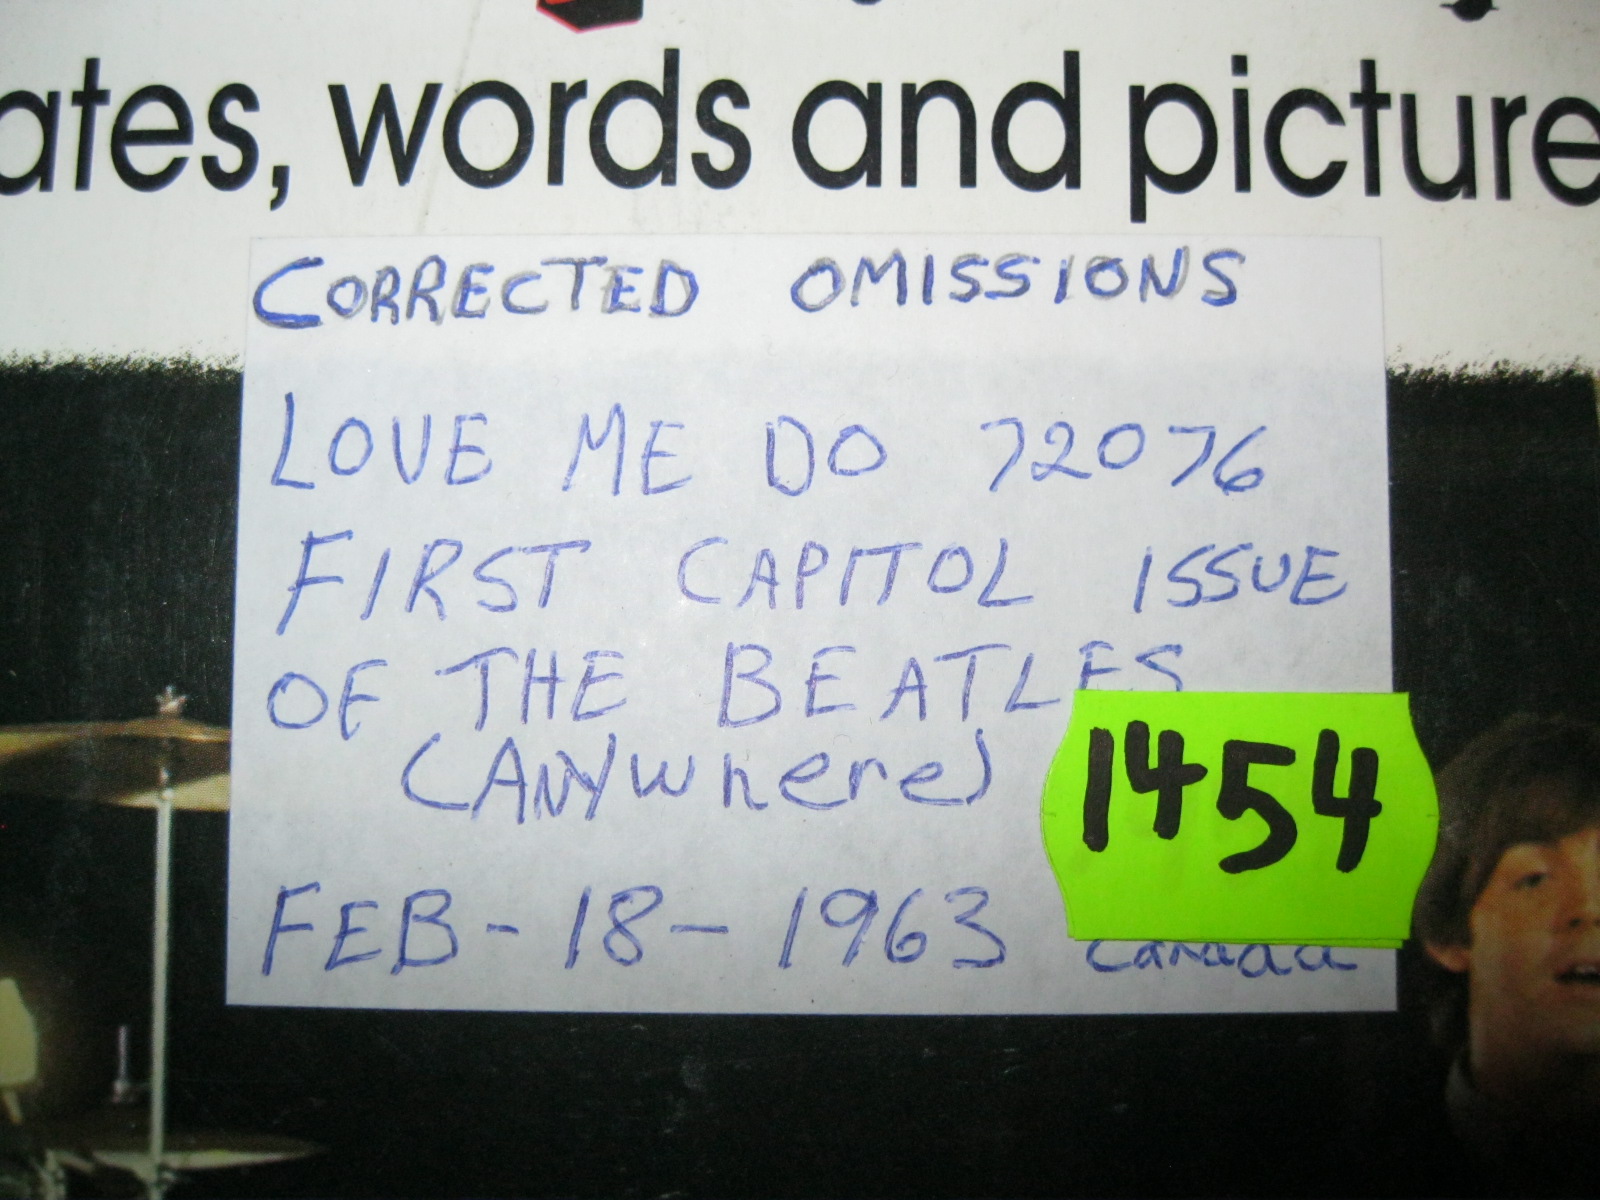 ates, words and picture
CORRECTED OMISSIONS
LOVE ME DO 72076
FIRST CAPITOL ISSUE
OF THE BEATLES
(ANYwhere)
1454
FEB-18-1963 Canada